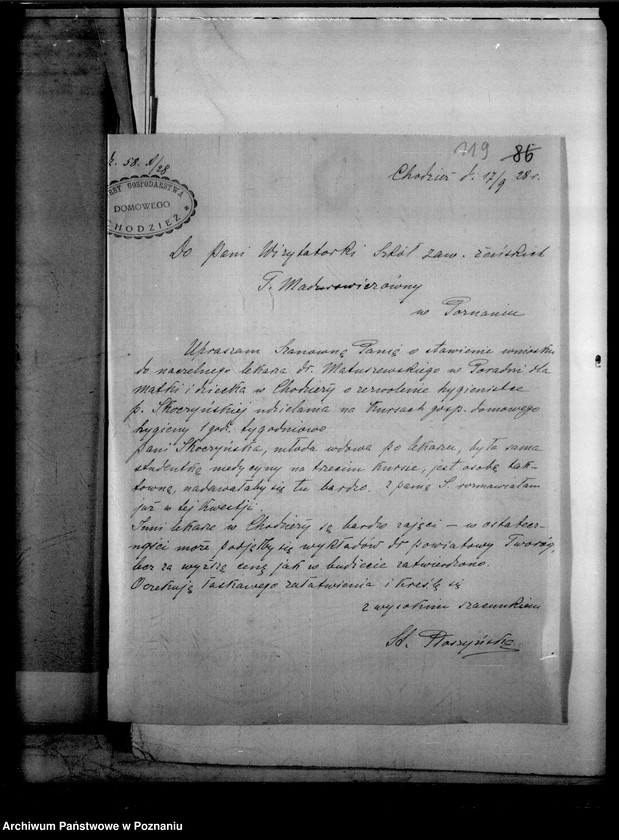 119 86
58. 9/28
Chodzież d. 17/9 28 r.
GOSPODARSTWA
DOMOWEGO
CHODZIEŻ
Do Pani Wizytatorki Szkół zaw. żeńskich
T. Madurowiczówny
w Poznaniu
Upraszam Szanowną Panią o stawienie wniosku
do naczelnego lekarza dr. Matuszewskiego w Poradni dla
matki i dziecka w Chodzieży o zezwolenie hygienistce
p. Skoczyńskiej udzielania na kursach gosp. domowego
hygieny 1 god. tygodniowo
Pani Skoczyńska, młoda wdowa po lekarzu, była sama
studentką medycyny na trzecim kursie, jest osobą tak-
towną, nadawałaby się tu bardzo. z panią S. rozmawiałam
już w tej kwestji.
Inni lekarze w Chodzieży są bardzo zajęci – w ostatecz-
ności może podjąłby się wykładów dr powiatowy Twaróg,
lecz za wyższą cenę jak w budżecie zatwierdzono.
Oczekuję łaskawego załatwienia i kreślę się
z wysokim szacunkiem
St.
Archiwum Państwowe w Poznaniu